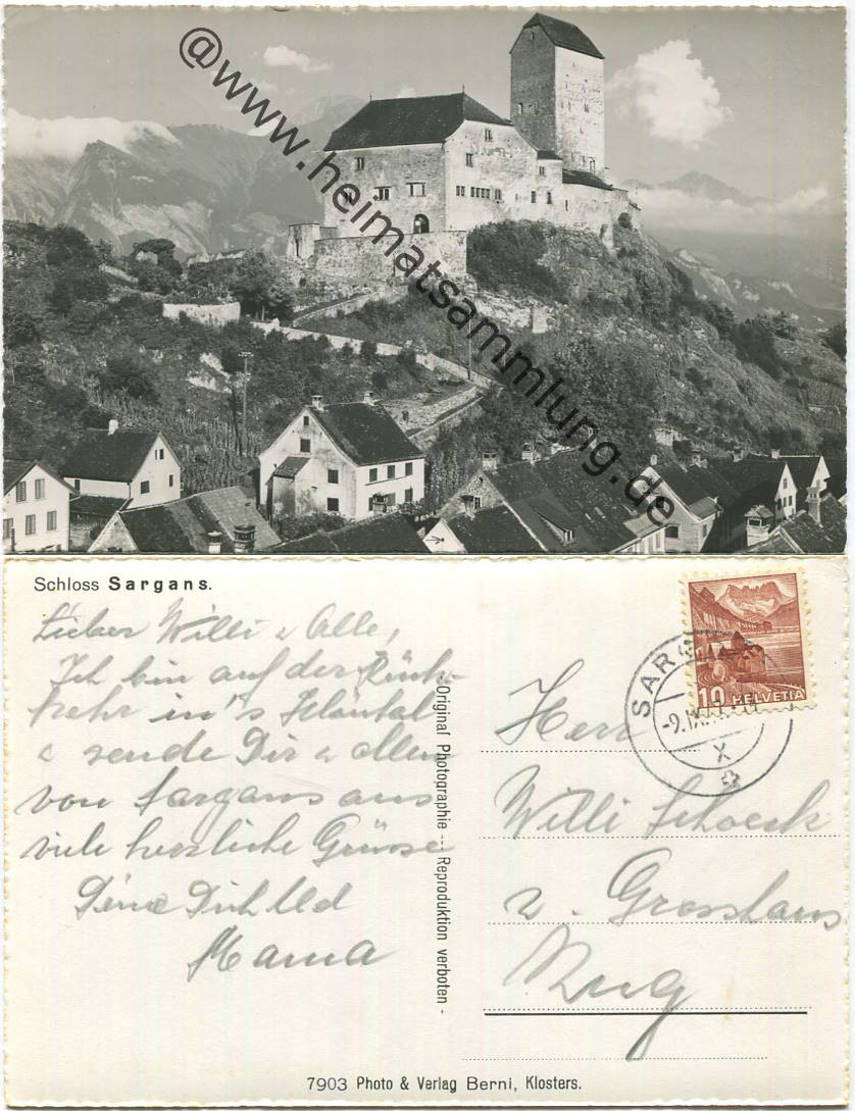 @www.heimatsammlung.de
Schloss Sargans.
Lieber Willi & Alle,
Ich bin auf der Rück-
kehr in's
& sende Dir & allen
von Sargans aus
viele herzliche Grüsse
Deine Dich lbd
Mama
Original Photographie --- Reproduktion verboten -
10 HELVETIA
SAR
-9.IX.
X
Herr
Willi Schoeck
z. Grosshaus
Zug
7903 Photo & Verlag Berni, Klosters.